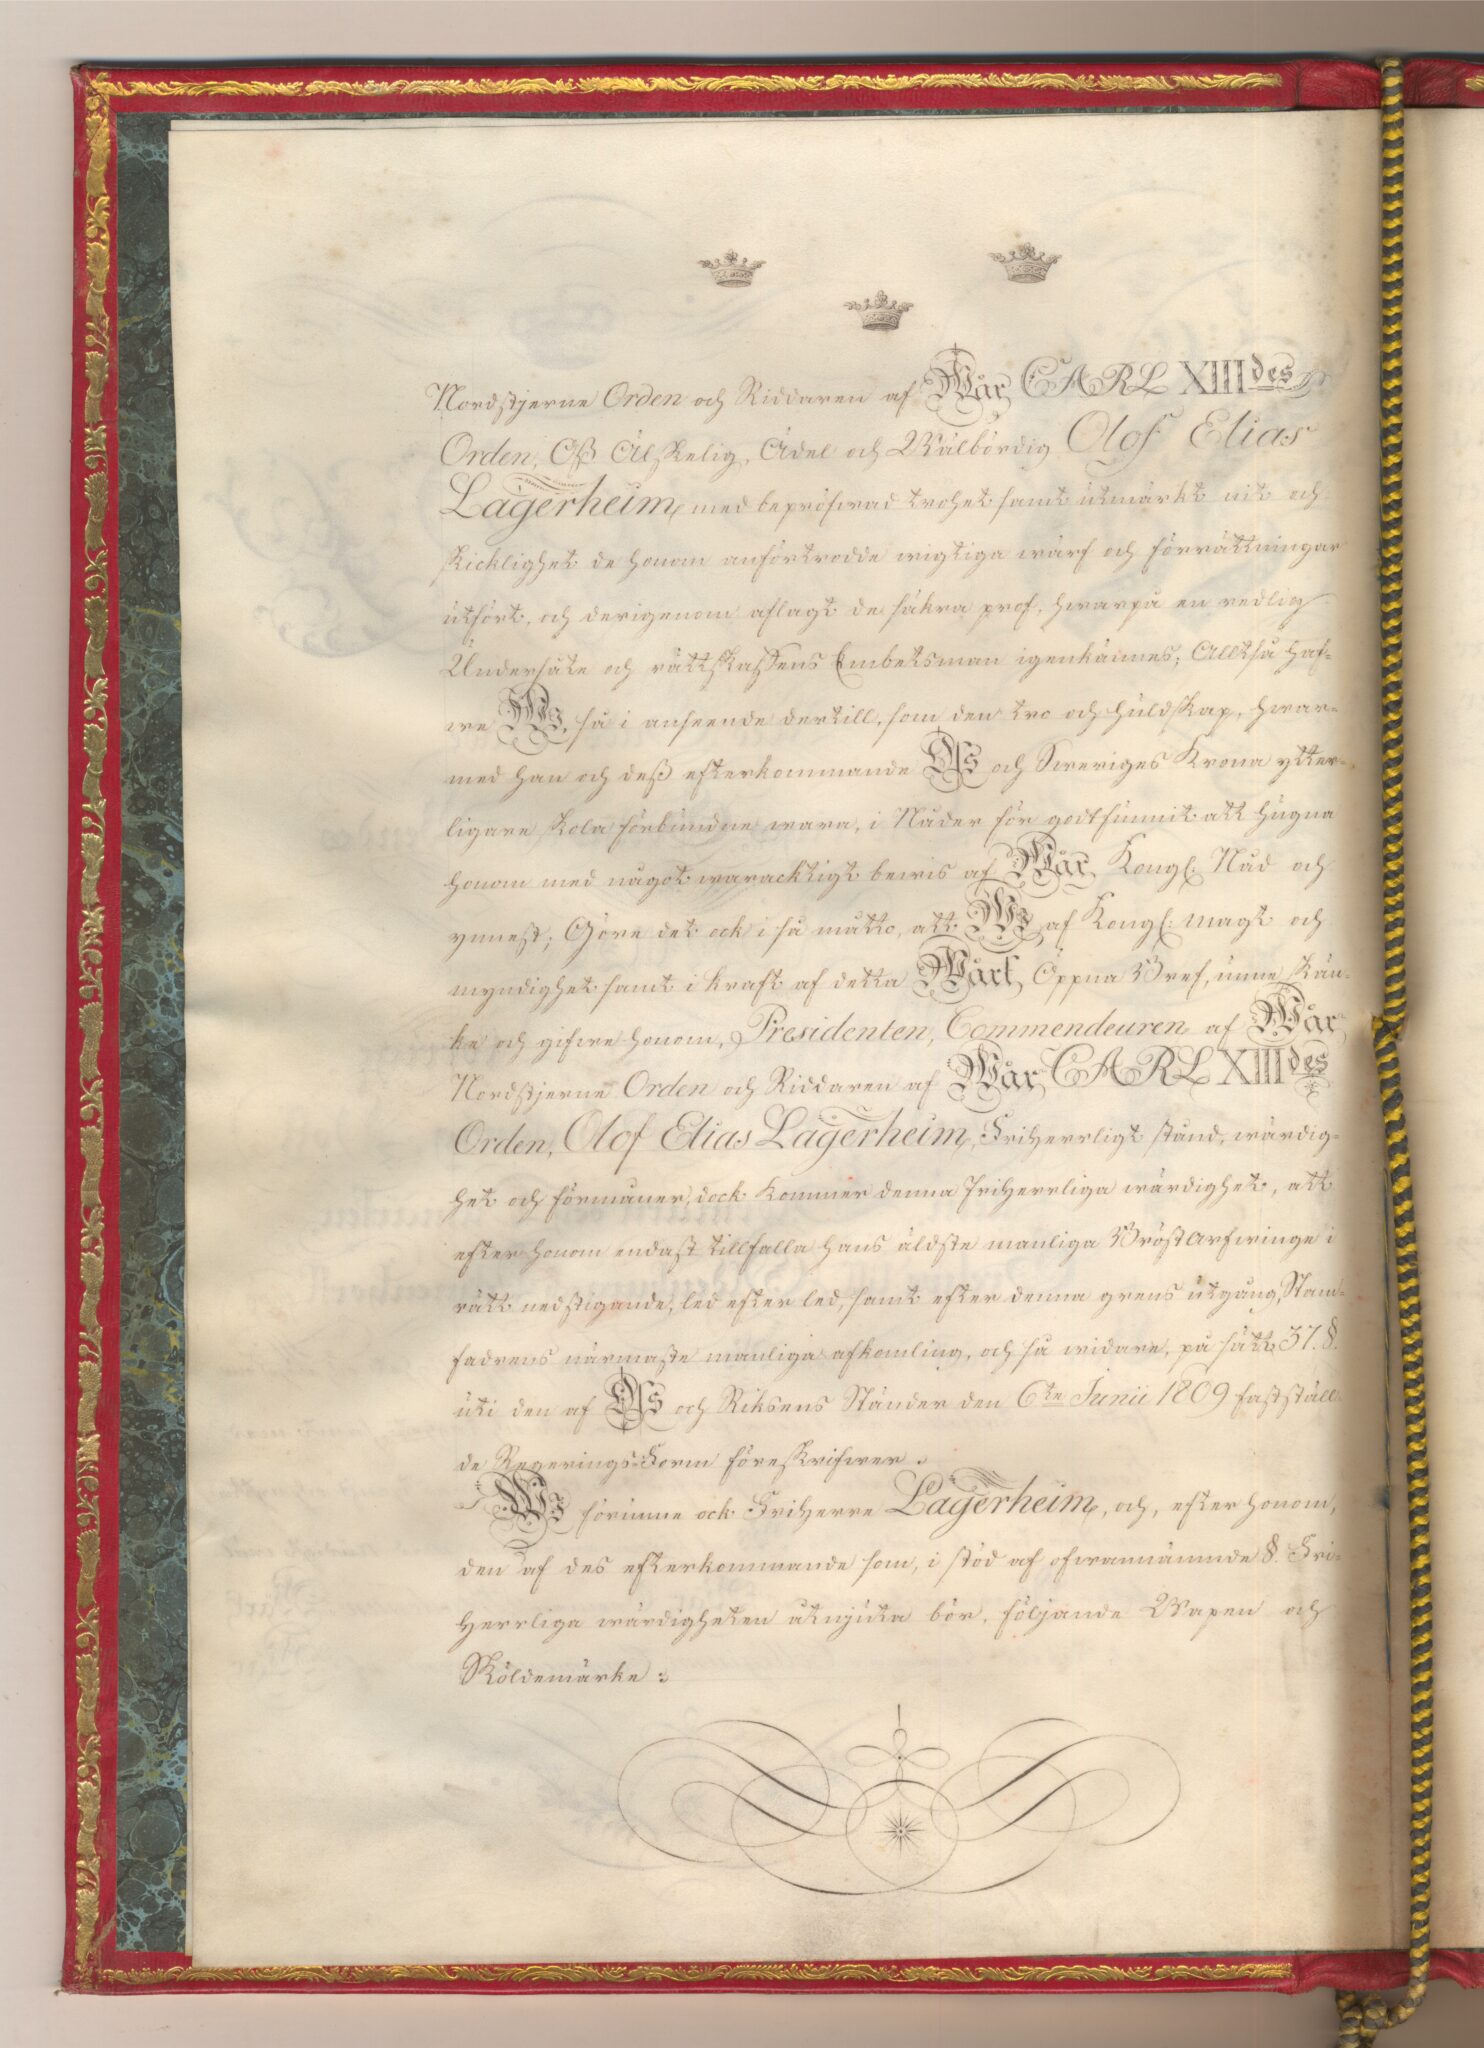 Nordstjerne Orden och Riddaren af Wår CARL XIII des
Orden, Oß Älskelig, Ädel och Wälbördig Olof Elias
Lagerheim, med bepröfwad trohet samt utmärkt nit och
skicklighet de honom anförtrodde wigtiga wärf och förrättningar
utfört, och derigenom aflagt de säkra prof, hwarpå en redlig
Undersåte och rättskaffens Embetsman igenkännes; Alltså haf-
we Wi, så i anseende dertill, som den tro och huldskap, hwar-
med han och deß efterkommande Oß och Sweriges Krona ytter-
ligare skola förbundne wara, i Nåder för godtfunnit att hugna
honom med något waracktigt bewis af Wår Kongl: Nåd och
ynnest; Göre det ock i så matto, att Wi af Kongl: magt och
myndighet samt i kraft af detta Wårt Öppna Bref, unne skän-
ke och gifwe honom, Presidenten, Commendeuren af Wår
Nordstjerne Orden och Riddaren af Wår CARL XIII des
Orden, Olof Elias Lagerheim, Friherrligt stånd, wärdig-
het och förmåner, dock kommer denna Friherrliga wärdighet, att
efter honom endast tillfalla hans äldste manliga Bröstarfwinge i
rätt nedstigande, led efter led, samt efter denna grens utgång, Stam-
fadrens närmaste manliga afkomling, och så widare, på sätt 37. §.
uti den af Oß och Riksens Ständer den 6te Junii 1809 fastställ-
de Regerings-Form föreskrifwer.
Wi förunne ock Friherre Lagerheim, och, efter honom,
den af des efterkommande som, i stöd af ofwannämnde §. Fri-
herrliga wärdigheten åtnjuta bör, följande Wapen och
Sköldemärke: